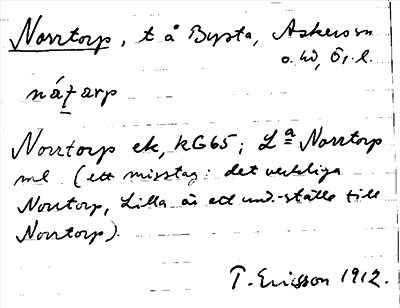 Norrtorp, t å Bysta, Askers sn
o. hd, Ör. l.
náʈarp
Norrtorp ek, KG65; La Norrtorp
ml (ett misstag: det verkliga
Norrtorp, Lilla är ett und.-ställe till
Norrtorp).
T. Ericsson 1912.